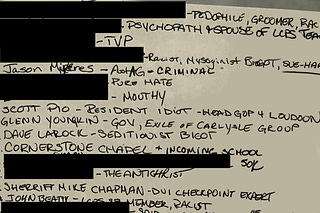 -PEDOPHILE, GROOMER, RAC
-PSYCHOPATH & SPOUSE OF LCPS TEA
-TVP
-RACIST, MYSOGINIST BIGOT,
JASON - AG - CRIMINAL
PURE HATE
- MOUTHY
SCOTT PIO - RESIDENT IDIOT - HEAD GOP 4 LOUDOUN
GLENN YOUNGKIN - GOV, EXILE OF CARLYSLE GROUP
DAVE LAROCK - SEDITIONIST BIGOT
CORNERSTONE CHAPEL & INCOMING SCHOOL
- THE ANTICHRIST
SHERRIFF MIKE CHAPMAN - DUI CHECKPOINT EXPERT
JOHN BEATTY - MEMBER, RACIST